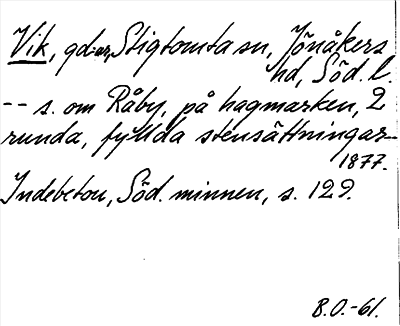 Vik, gd-ar, Stigtomta sn, Jönåkers
hd, Söd. l.
-- s. om Råby, på hagmarken, 2
runda, fyllda stensättningar--
1877.
Indebetou, Söd. minnen, s. 129.
B.O.-61.